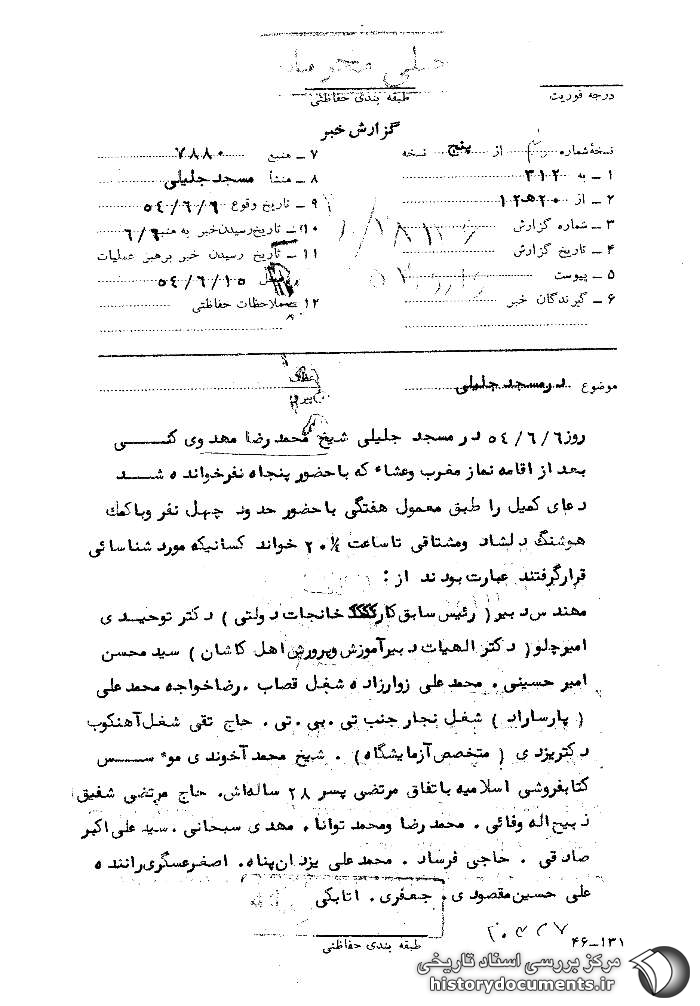 طبقه بندی حفاظتی
درجه فوریت
گزارش خبر
نسخهٔ شماره از پنج نسخه
۱ ـ به ۳۱۲
۲ ـ از ۲۰ هـ ۱۲
۳ ـ شماره گزارش
۴ ـ تاریخ گزارش
۵ ـ پیوست
۶ ـ گیرندگان خبر
۷ ـ منبع ۷۸۸۰
۸ ـ منشأ مسجد جلیلی
۹ ـ تاریخ وقوع ۵۴/۶/۶
۱۰ ـ تاریخ رسیدن خبر به منبع ۶/۶
۱۱ ـ تاریخ رسیدن خبر برهبر عملیات
۵۴/۶/۱۵
۱۲ ـ ملاحظات حفاظتی
موضوع در مسجد جلیلی
روز ۵۴/۶/۶ در مسجد جلیلی شیخ محمد رضا مهدوی کنی
بعد از اقامه نماز مغرب وعشاء که با حضور پنجاه نفر خوانده شد
دعای کمیل را طبق معمول هفتگی با حضور حدود چهل نفر وبا کمک
هوشنگ دلشاد ومشتاقی تا ساعت ۲۰٫¼ خواند کسانیکه مورد شناسائی
قرار گرفتند عبارت بودند از :
مهندس دبیر ( رئیس سابق کارخانجات دولتی ) دکتر توحیدی
امیر چلو ( دکتر الهیات دبیر آموزش وپرورش اهل کاشان ) سید محسن
امیر حسینی . محمد علی زوارزاده شغل قصاب . رضا خواجه محمد علی
( پارساراد ) شغل نجار جنب تی . بی . تی . حاج تقی شغل آهنکوب
دکتر یزدی ( متخصص آزمایشگاه ) . شیخ محمد آخوندی موسس
کتابفروشی اسلامیه باتفاق مرتضی پسر ۲۸ ساله‌اش. حاج مرتضی شفیق
ذبیح اله وفائی . محمد رضا ومحمد توانا . مهدی سبحانی . سید علی اکبر
صادقی . حاجی فرساد . محمد علی یزدان پناه. اصغر عسگری راننده
علی حسین مقصودی . جعفری . اتابکی
طبقه بندی حفاظتی
۴۶-۱۳۱
مرکز بررسی اسناد تاریخی
historydocuments.ir